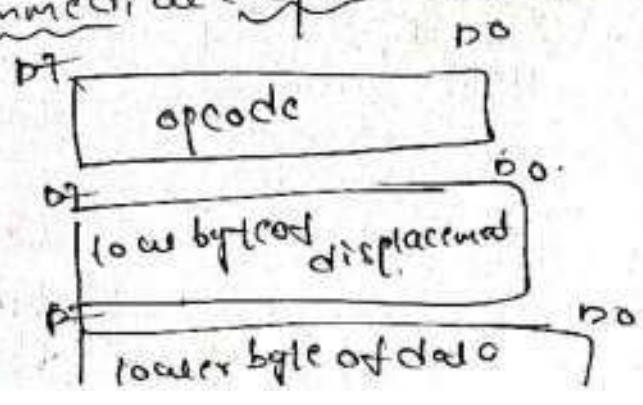 D7 D0
opcode
D7 D0.
low byte of displacement
D7 D0
lower byte of data